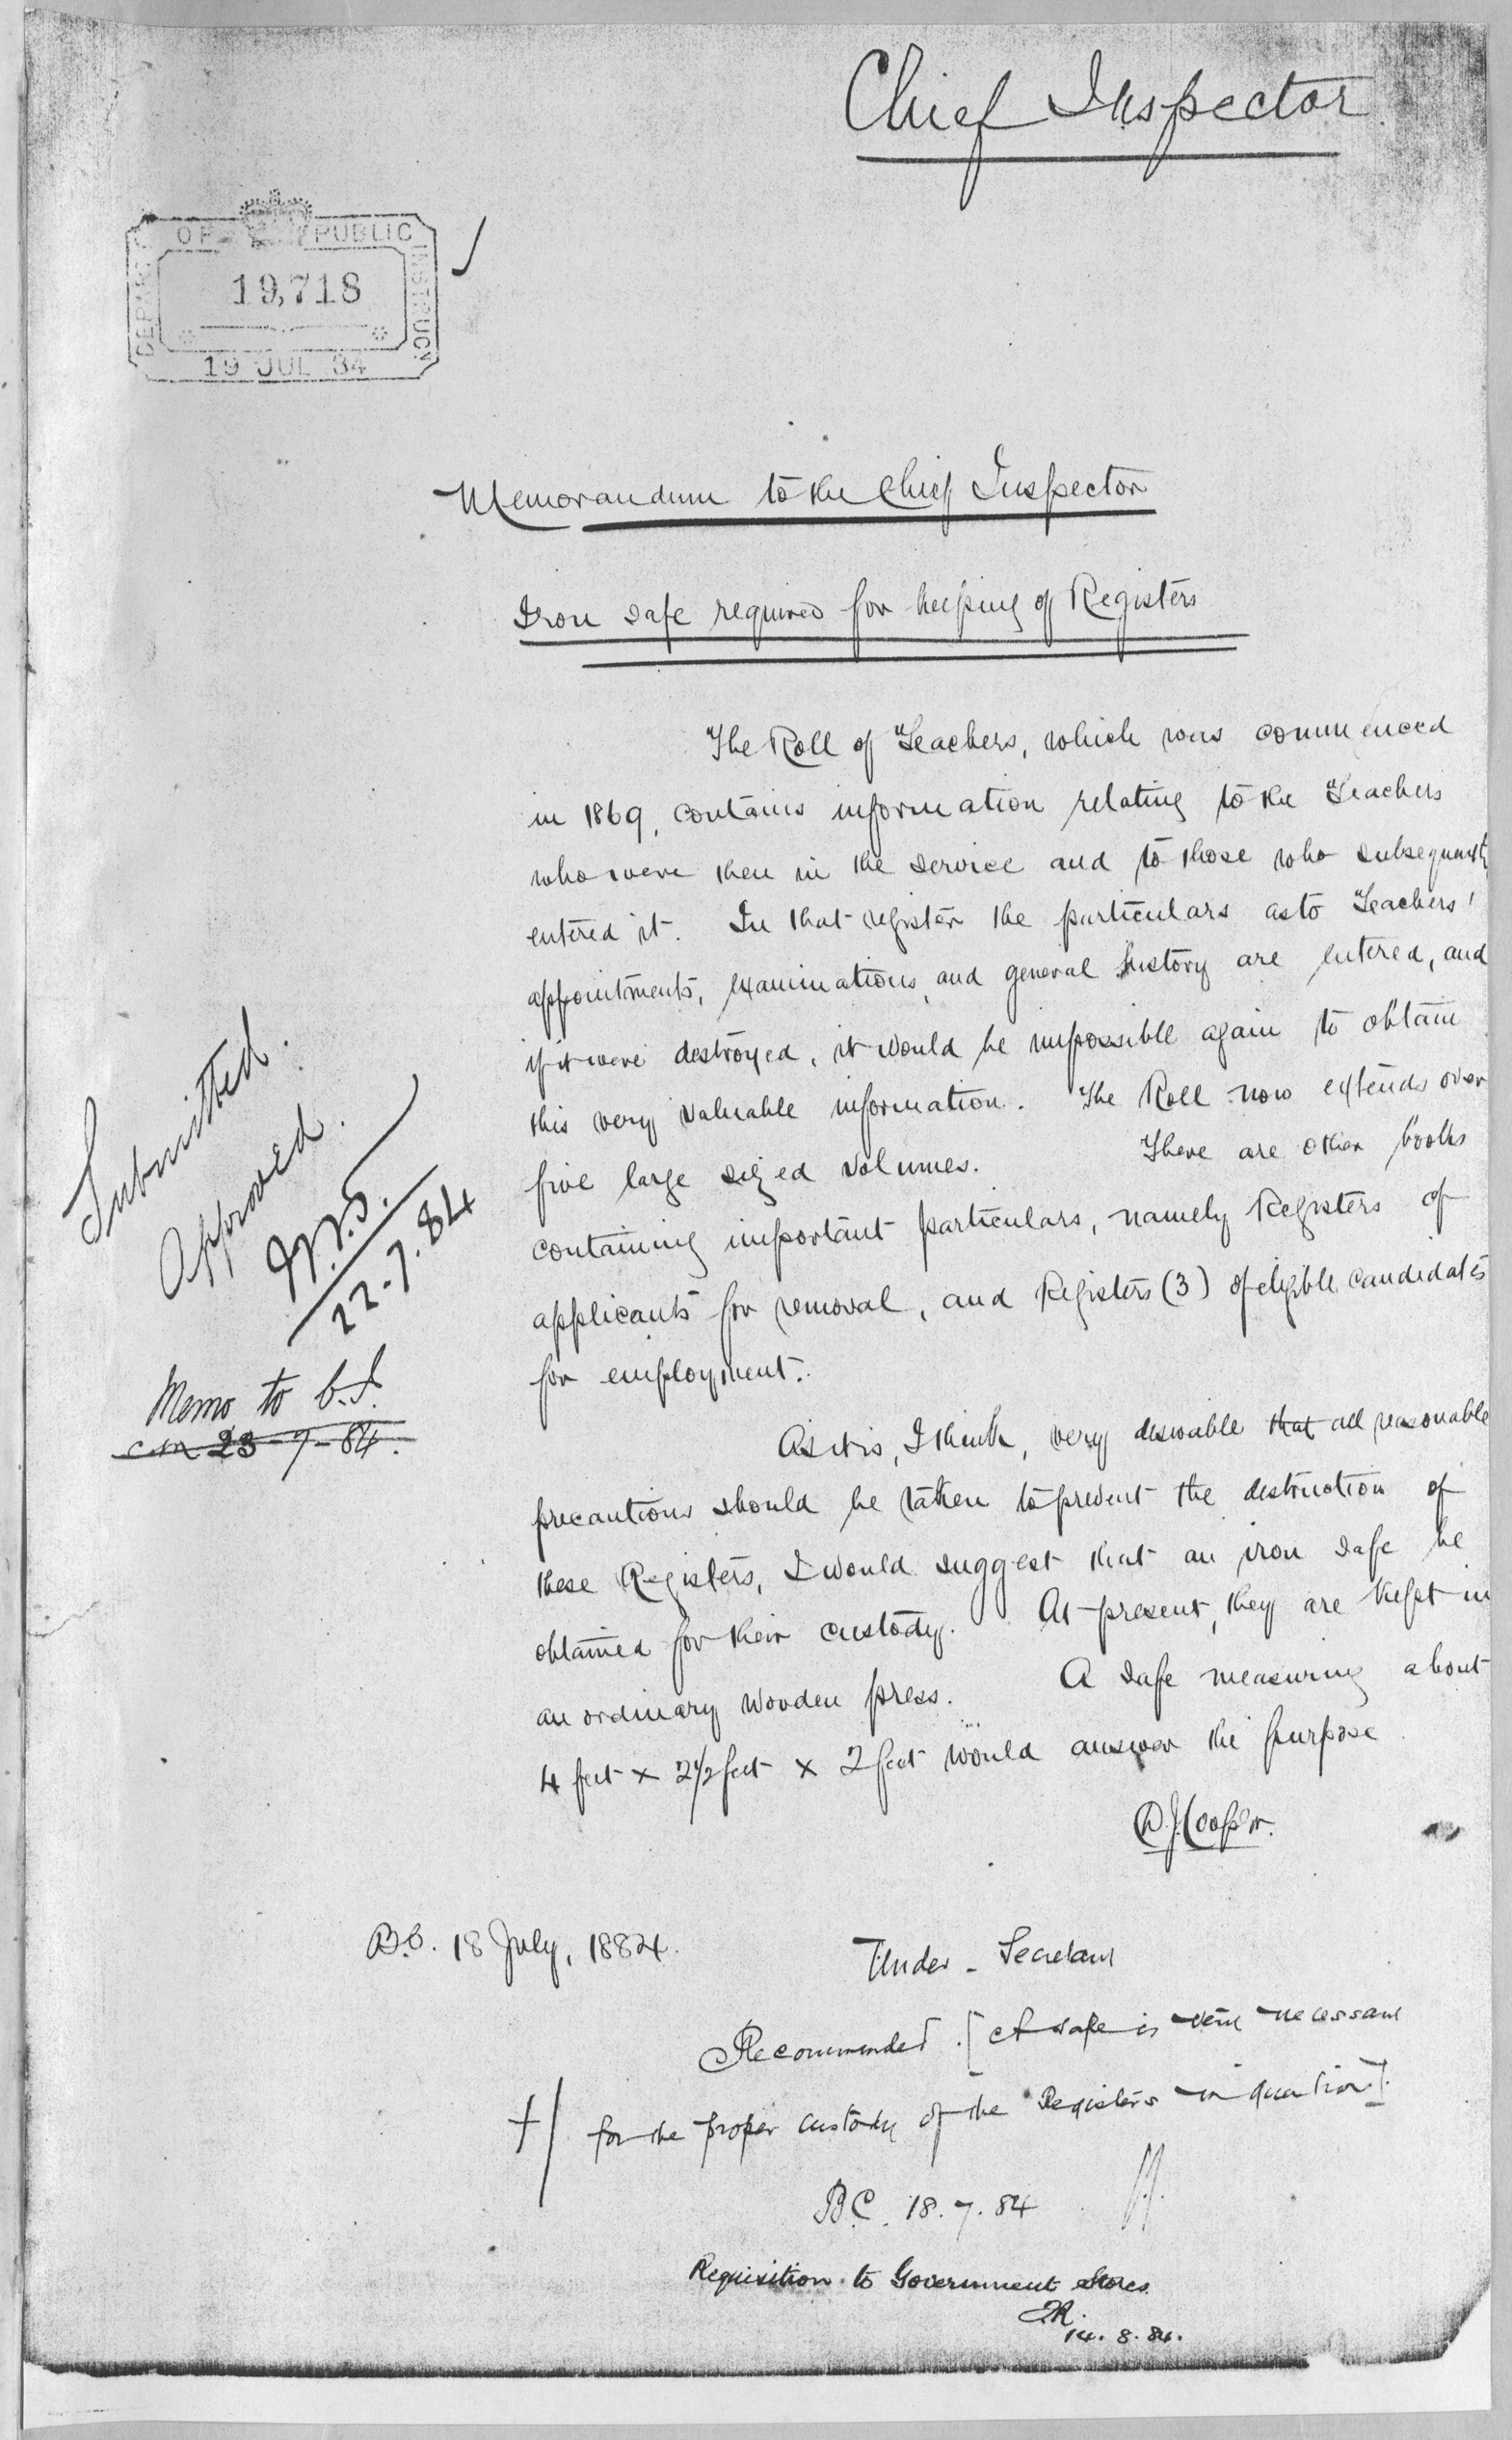 Chief Inspector
DEPART OF PUBLIC INSTRUCN
19,718
19 JUL 84
Memorandum to the Chief Inspector
Iron safe required for keeping of Registers
The Roll of Teachers, which was commenced
in 1869, contains information relating to the Teachers
who were then in the service and to those who subsequently
entered it. In that register the particulars as to Teachers'
appointments, examinations, and general history are entered, and
if it were destroyed, it would be impossible again to obtain
this very valuable information. The Roll now extends over
five large sized volumes. There are other books
containing important particulars, namely Registers of
applicants for removal, and Registers (3) of eligible candidates
for employment.
As it is, I think, very desirable that all reasonable
precautions should be taken to prevent the destruction of
these Registers, I would suggest that an iron safe be
obtained for their custody. At present, they are kept in
an ordinary wooden press. A safe measuring about
4 feet x 2 1/2 feet x 2 feet would answer the purpose
D.J. Cooper.
B.C. 18 July, 1884.
Submitted.
Approved.
22.7.84
Memo to C.I.
23-7-84.
Under-Secretary
Recommended. [A safe is very necessary
for the proper custody of the Registers in question].
B.C. 18.7.84
Requisition to Government Stores
14.8.84.